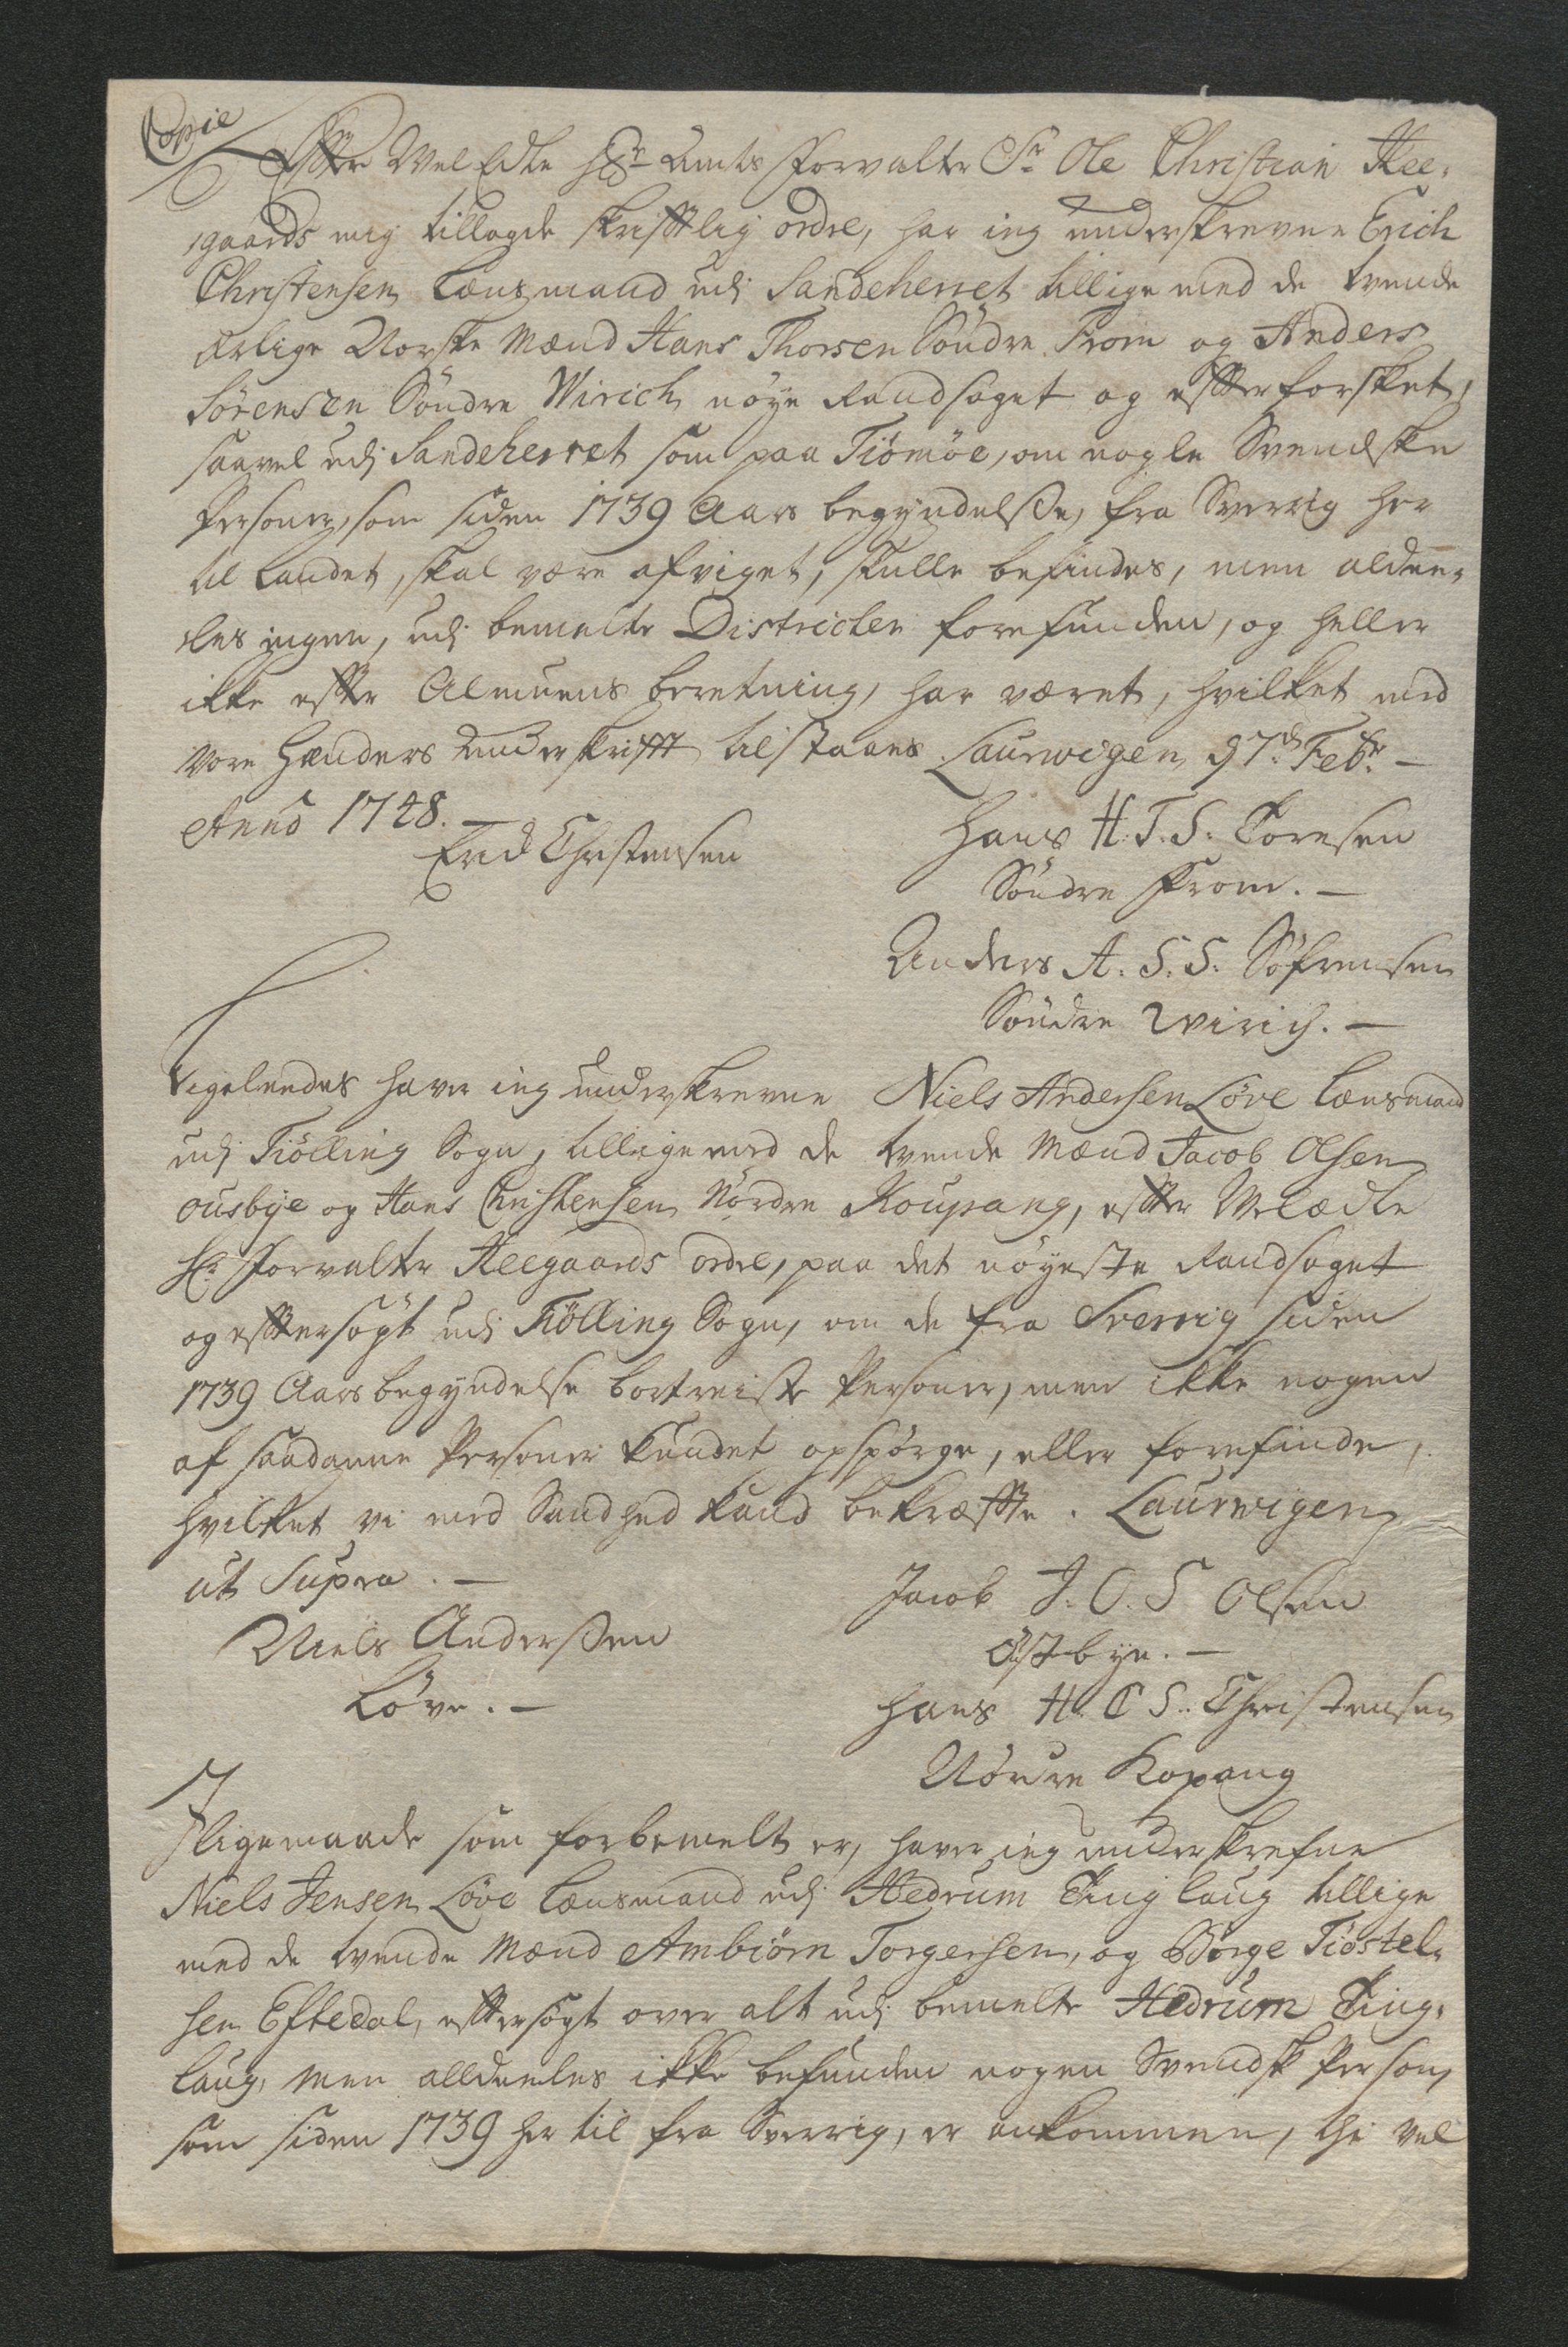 Copie
Efter Wel Edle Hr. Amts Forvalter Sr. Ole Christian Hee-
gaards mig tillagde skrifftlig ordre, har ieg underskrevne Erich
Christensen Lensmand udj Sandeherret tillige med de tvende
Ærlige Norske Mænd Hans Thorsen Söndre From og Anders
Sörensen Söndre Wirich, nöye Randsaget og effterforsket,
saavel udj Sandeherret som paa Tiömöe, om nogle Svendske
Personer, som siden 1739 Aars begyndelsße, fra Sverrig her
til Landet, skal være afviget, skulle befindes, men aldee-
les ingen, udj bemelte Districter forefunden, og heller
ikke effter Almuens beretning, har været, hvilket med
vore Hænders Underskrifft tilstaaes Laurwigen, d 7de Febr. –
Anno 1748. –
Erich Christensen
Hans H. T. S. Toresen
Söndre From. –
Anders A. S. S. Söfrensen
Söndre Wirich. –
Ligeleedes haver ieg underskrevne Niels Andersen Löve Lensmand
udj Tiölling Sogn, tillige med de tvende Mænd Jacob Olsen
Ousbye og Hans Christensen Nordre Koupang, effter Welædle
Hr. Forvalter Heegaards ordre, paa det nöyeste Randsaget
og efftersögt udj Tiölling Sogn, om de fra Sverrig siden
1739 Aars begyndelse bortreiste Personer, men ikke nogen
af saadanne Personer kundet opspörge, eller forefinde,
hvilket vi med Sandhed kand bekræffte. Laurwigen,
ut Supra. –
Niels Anderßen
Löve. –
Jacob J. O. S Olsen
Östbye. –
Hans H. C S. Christensen
Nordre Kopang
I ligemaade som forbemelt er, haver ieg underskrefne
Niels Jensen Löve Lensmand udj Hedrum Ting laug tillige
med de tvende Mænd Ambiörn Torgersen, og Börge Tiöstel-
sen Eftedal, efftersögt over alt udj bemelte Hedrum Ting-
laug, men alldeeles ikke befunden nogen Svendsk Person,
som siden 1739 her til fra Sverrig, er ankommen, thi vel